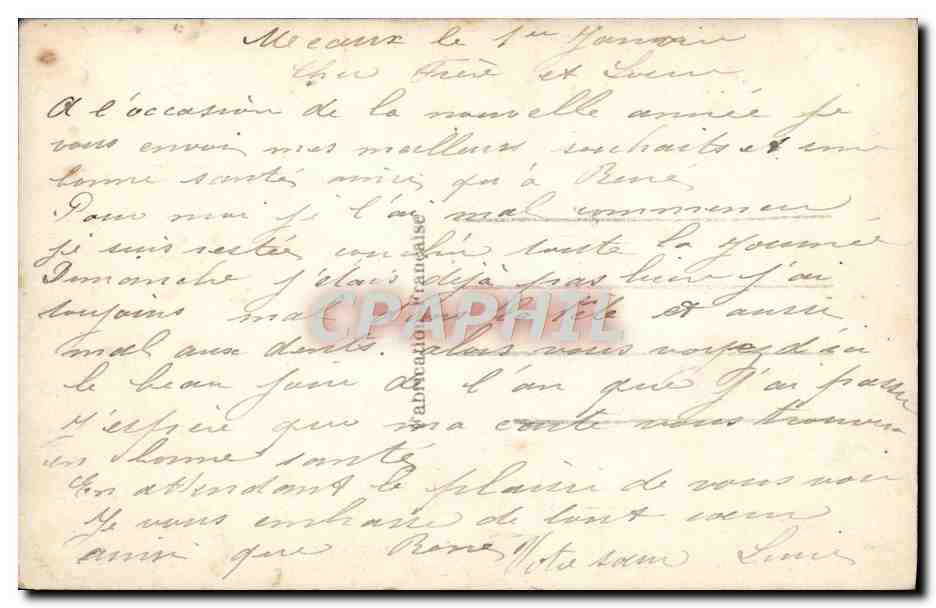 Meaux le 1er Janvier
Cher Frère et
A l'occasion de la nouvelle année je
vous envoi mes meilleurs souhaits et une
bonne santé ainsi qu'à René
Pour moi je l'ai mal commencer
je suis restée couchée toute la journée
Dimanche j'étais déjà pas bien j'ai
toujours mal la tête et aussi
mal aux dents. alors vous voyez d'ici
le beau jour de l'an que j'ai passer
J'espère que ma carte vous trouvera
en bonne santé
En attendant le plaisir de vous voir
Je vous embrasse de tout cœur
ainsi que René Votre sœur
Fabrication Française
CPAPHIL